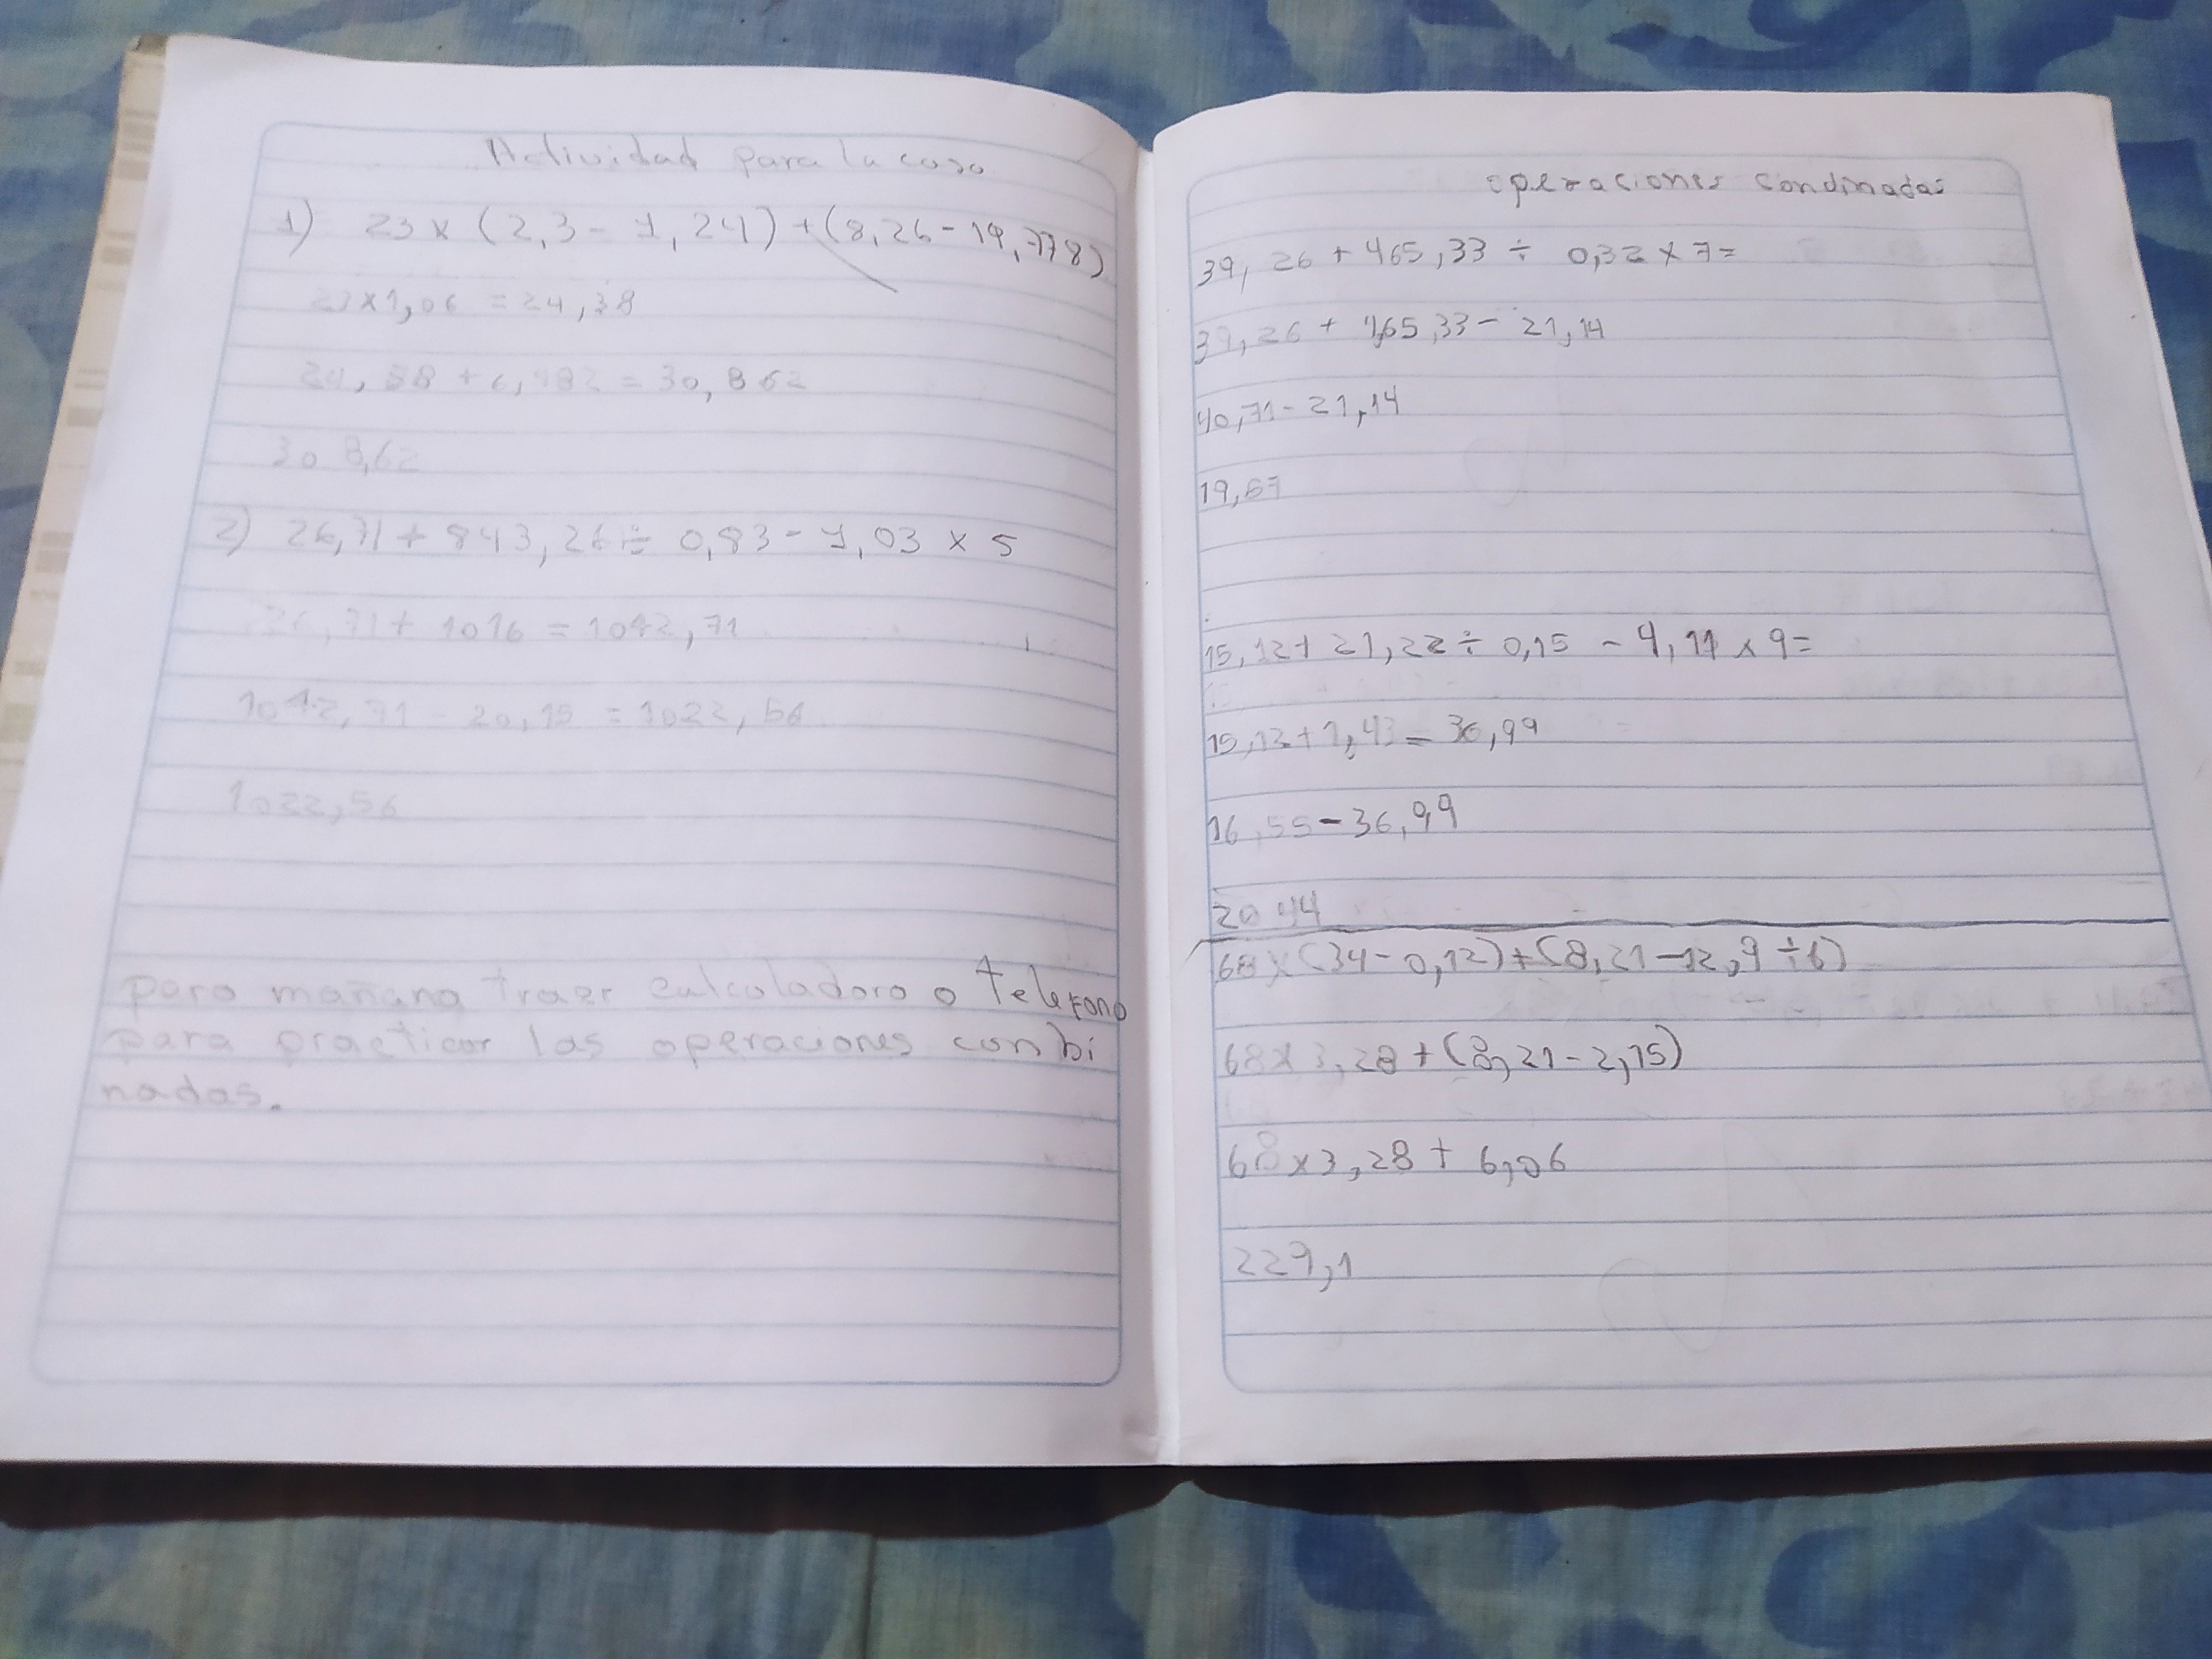 Actividad para la casa
1) 23 x (2,3 - 1,24) + (8,26 - 14,778)
23x1,06 = 24,38
24,38 + 6,482 = 30,862
308,62
2) 26,71 + 843,26 ÷ 0,83 - 4,03 x 5
26,71 + 1016 = 1042,71
1042,71 - 20,15 = 1022,56
1022,56
para mañana traer calculadora o telefono
para practicar las operaciones conbi
nadas.
operaciones condinadas
39,26 + 465,33 ÷ 0,32 x 7=
39,26 + 1,65,33 - 21,14
40,71 - 21,14
19,57
15,12 + 21,22 ÷ 0,15 - 4,11 x 9=
15,12 + 1,43 = 36,99
16,55 - 36,99
20 44
68 x (34 - 0,12) + (8,21 - 12,9 ÷ 6)
68 x 3,28 + (8,21 - 2,15)
68 x 3,28 + 6,06
229,1